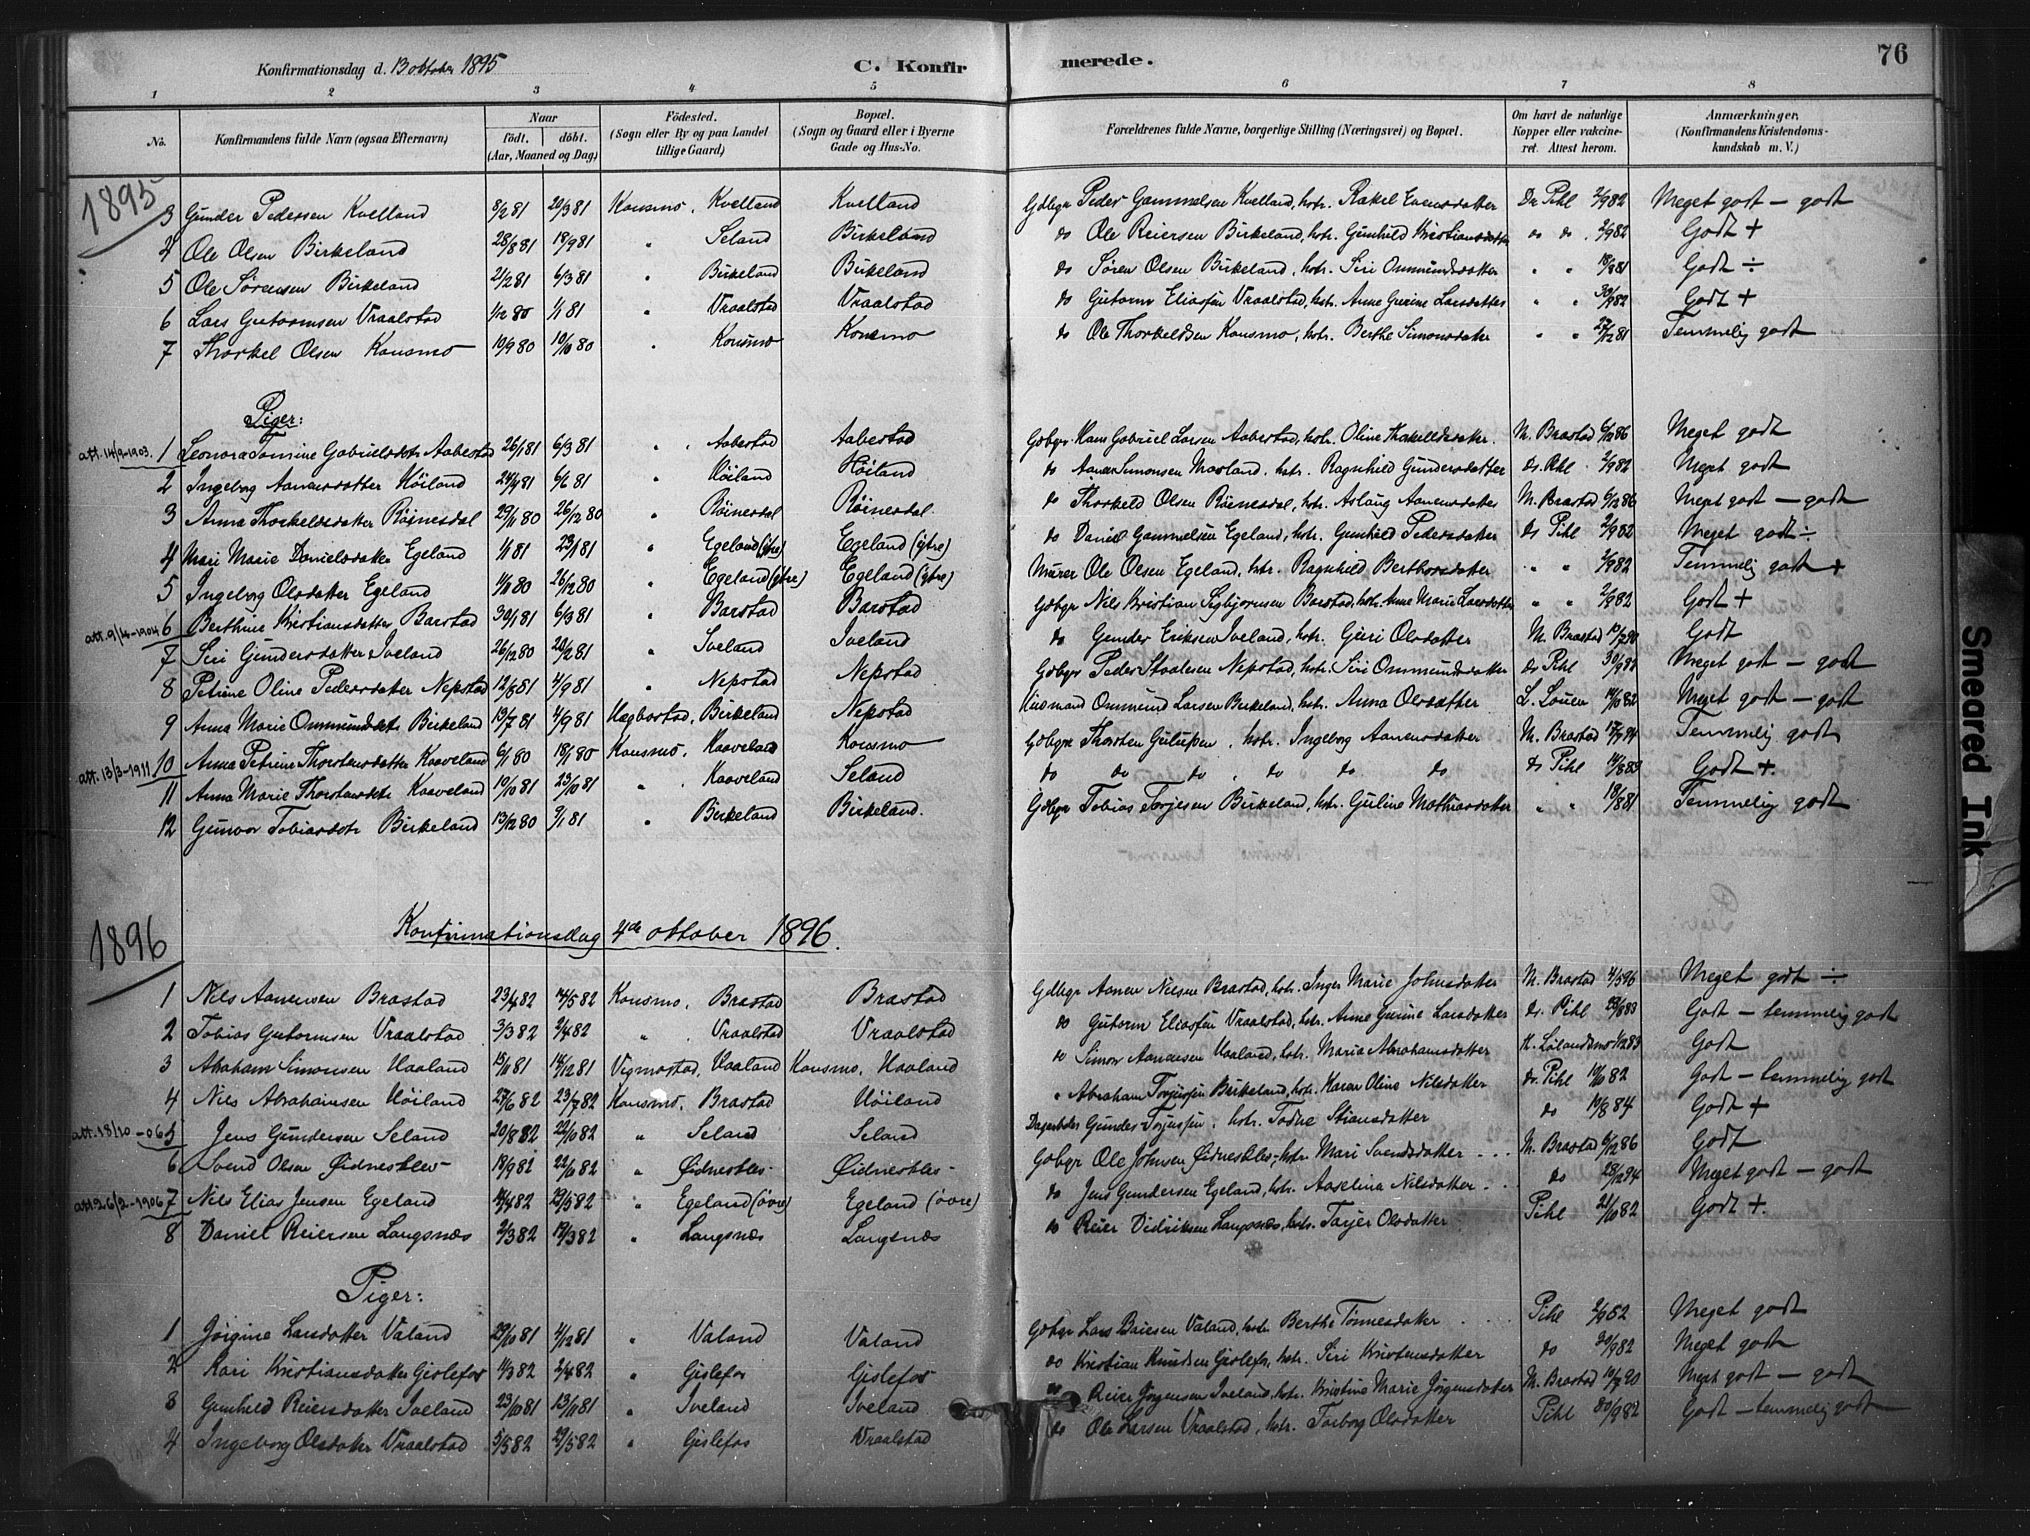 76
Konfirmationsdag d. 13 oktober 1895
C. Konfirmerede.
1 2 3 4 5 6 7 8
No. Konfirmandens fulde Navn (ogsaa Efternavn) Naar født. døbt. (Aar, Maaned og Dag) Fødested. (Sogn eller By og paa Landet tillige Gaard) Bopæl. (Sogn og Gaard eller i Byerne Gade og Hus-No. Forældrenes fulde Navne, borgerlige Stilling (Næringsvei) og Bopæl. Om havt de naturlige Kopper eller vakcineret. Attest herom. Anmærkninger. (Konfirmandens Kristendomskundskab m. V.)
1895
3 Gunder Pedersen Kvelland 8/2 81 20/3 81 Konsmo, Kvelland Kvelland Gdbgr Peder Gammelsen Kvelland, hstr. Rakel Evensdatter Dr Pihl 2/9 82 Meget godt - godt
4 Ole Olsen Birkeland 28/8 81 18/9 81 " Seland Birkeland do Ole Reiersen Birkeland, hstr. Gunhild Kristiansdatter do do 2/9 82 Godt +
5 Ole Sørensen Birkeland 2/2 81 6/3 81 " Birkeland Birkeland do Søren Olsen Birkeland, hstr. Siri Ommundsdatter " " 18/9 81 Godt ÷
6 Lars Gutormsen Vraalstad 1/12 80 1/1 81 " Vraalstad Vraalstad do Gutorm Eliassen Vraalstad, hstr. Anne Gurine Larsdatter " " 30/9 82 Godt +
7 Thorkel Olsen Konsmo 10/9 80 10/10 80 " Konsmo Konsmo do Ole Thorkeldsen Konsmo, hstr. Berthe Simonsdatter " " 27/12 81 Temmelig godt
Piger:
att. 14/9-1903. 1 Leonora Tomine Gabrielsdtr Aabestad 26/1 81 6/3 81 " Aabestad Aabestad Gdbgr. Hans Gabriel Larsen Aabestad, hstr. Oline Thorkeldsdatter. M. Brastad 6/12 86 Meget godt
2 Ingeborg Aanensdatter Høiland 24/4 81 6/6 81 " Høiland Høiland do Aanen Simonsen hstr. Ragnhild Gundersdatter Dr. Pihl 2/9 82 Meget godt
3 Anna Thorkeldsdatter Røinesdal 29/11 80 26/12 80 " Røinesdal Røinesdal do Thorkeld Olsen Røinesdal, hstr. Aslaug Aanensdatter M. Brastad 6/12 86 Meget godt - godt
4 Mari Marie Danielsdatter Egeland 1/1 81 23/1 81 " Egeland (ytre) Egeland (ytre) do Daniel Gammelsen Egeland, hstr. Gunhild Pedersdatter Dr Pihl 2/9 82 Meget godt ÷
5 Ingeborg Olsdatter Egeland 80 26/12 80 " Egeland (ytre) Egeland (ytre) Murer Ole Olsen Egeland, hstr. Ragnhild Berthorsdatter " " 2/9 82 Temmelig godt +
att. 9/4-1904 6 Berthine Kristiansdatter Barstad 30/1 81 6/3 81 " Barstad Barstad Gdbgr Nils Kristian Sigbjørnsen Barstad, hstr. Anne Marie Larsdatter " " 82 Godt +
7 Siri Gundersdatter Iveland 26/12 80 20/2 81 " Iveland Iveland do Gunder Eriksen Iveland, hstr. Guri Olsdatter M. Brastad 90 Godt
8 Petrine Oline Pedersdatter Nepstad 12/8 81 4/9 81 " Nepstad Nepstad Gdbgr Peder Staalesen Nepstad, hstr. Siri Ommundsdatter Dr Pihl 30/9 82 Meget godt - godt
9 Anna Marie Ommundsdtr Birkeland 13/7 81 4/9 81 Hægbostad, Birkeland Nepstad Husmand Ommund Larsen Birkeland, hstr. Anna Olsdatter L. Louen 14/10 82 Meget godt - godt
10 Anna Petrine Thorstensdatter Kaaveland 6/1 80 18/1 80 Konsmo, Kaaveland Konsmo Gdbgr Thorsten hstr. Ingeborg Aanensdatter M. Brastad 94 Temmelig godt
att. 13/3-1911 11 Anna Marie Thorstensdtr Kaaveland 10/10 81 23/10 81 " Kaaveland Seland do do do do do do Dr Pihl 14/8 83 Godt +.
12 Gunvor Tobiasdtr Birkeland 13/12 80 9/1 81 " Birkeland Birkeland. Gdbgr Tobias Torjesen Birkeland, hstr. Guline Mathiasdatter " " 18/8 81 Temmelig godt
1896
Konfirmationsdag 4de oktober 1896.
1 Nils Aanensen Brastad 23/4 82 14/5 82 Konsmo, Brastad Brastad Gdbgr Aanen Nilsen Brastad, hstr. Inger Marie Johnsdatter M. Brastad 4/5 96 Meget godt ÷
2 Tobias Gutormsen Vraalstad 3/3 82 2/4 82 " Vraalstad Vraalstad do Gutorm Eliassen Vraalstad, hstr. Anne Gurine Larsdatter Dr. Pihl 83 Godt - temmelig godt
3 Abraham Simonsen Haaland 15/11 81 14/12 81 Vigmostad, Haaland Konsmo, Haaland do Simon Aanensen Haaland, hstr. Maria Abrahamsdatter K. Lølandsmo 1/12 83 Godt
4 Nils Abrahamsen Høiland 27/6 82 23/7 82 Konsmo, Brastad Høiland " Abraham Torjussen Birkeland, hstr. Karen Oline Nilsdatter Dr. Pihl 10/10 82 Godt - temmelig godt
att. 18/10-06 5 Jens Gundersen Seland 20/8 82 22/10 82 " Seland Seland Dagarbeider Gunder Torjussen, hstr. Todne Stiansdatter do 10/8 84 Godt +
6 Svend Olsen Øidneskleo 18/9 82 22/10 82 " Øidneskleo- Øidneskleo- Gdbgr Ole Johnsen Øidneskleo-, hstr. Mari Svendsdatter M. Brastad 6/12 86 Godt
att. 26/2-1906 7 Nils Elias Jensen Egeland 4/4 82 29/5 82 " Egeland (øvre) Egeland (øvre) do Jens Gundersen Egeland, hstr. Aaselina Nilsdatter do 28/12 94 Meget godt - godt
8 Daniel Reiersen Langsnæs 2/3 82 19/3 82 " Langsnæs Langsnæs do Reier Didriksen Langsnæs, hstr. Tarjer Olsdatter Pihl 21/10 82 Godt +.
Piger:
1 Jørgine Larsdatter Valand 29/10 81 4/12 81 " Valand Valand Gdbgr Lars Valand, hstr. Berthe Tønnesdatter Pihl 2/9 82 Meget godt
2 Kari Kristiansdatter Gislefos 11/3 82 2/4 82 " Gislefos Gislefos do Kristian Knudsen Gislefos, hstr. Siri Kristensdatter do 30/9 82 Meget godt
3 Gunhild Reiersdatter Iveland 23/10 81 13/11 81 " Iveland Iveland do Reier Jørgensen Iveland, hstr. Kristine Marie Jørgensdatter M. Brastad 90 Meget godt - godt
4 Ingeborg Olsdatter Vraalstad 5/5 82 29/5 82 " Gislefos Vraalstad do Ole Larsen Vraalstad, hstr. Torborg Olsdatter Pihl 30/9 82 Godt - temmelig godt
Smeared Ink